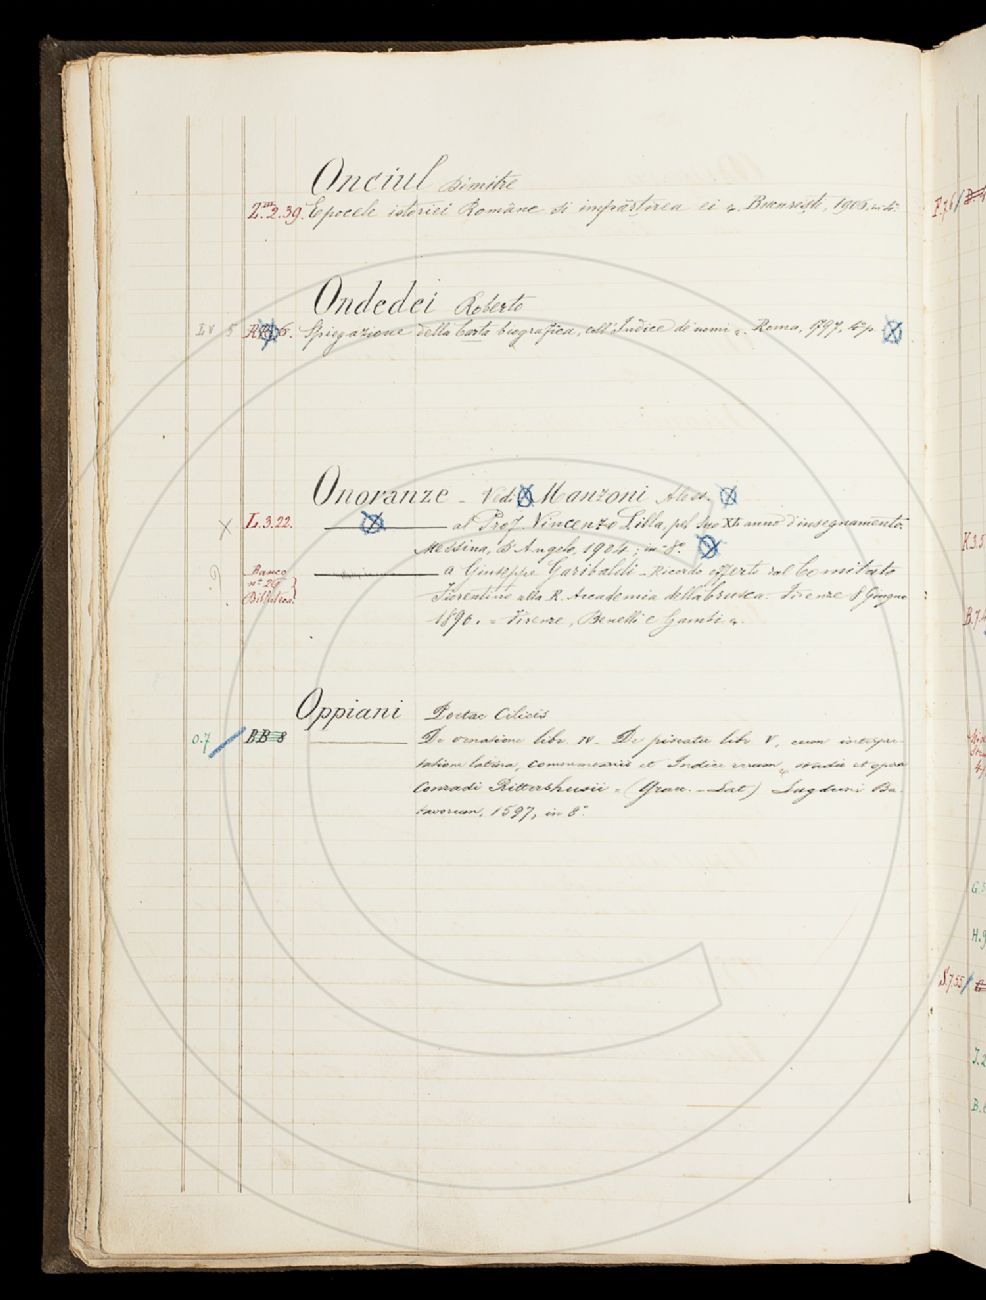 Onciul Dimitre
Z.III.2.39. Epocele istoriei Române si impărtirea ei Bucureşti, 1906. in 8°
Ondedei Roberto
LV 5 Spiegazione della Carta biografica, coll'Indice de' nomi Roma, 1797, 4°p.
Onoranze - Vedi Manzoni Aless.
L.3.22. al Prof. Vincenzo Lilla, pel suo XL anno d'insegnamento.
Messina, D'Angelo, 1904; in 8°.
Banco
n° 29
Bibliotica
a Giuseppe Garibaldi - Ricordo offerto dal Comitato
Fiorentino alla R. Accademia della Crusca. Firenze 8 Giugno
1890. = Firenze, Benelli e Gambi
Oppiani Poetae Cilicis
0.7 BB 8 De venatione libr. IV - De piscatu libr V, cum interpre-
tatione latina, commentariis et Indice rerum studio et opera
Conradi Rittershusii = (Graec. - Lat) Lugduni Ba-
tavorum, 1597, in 8°